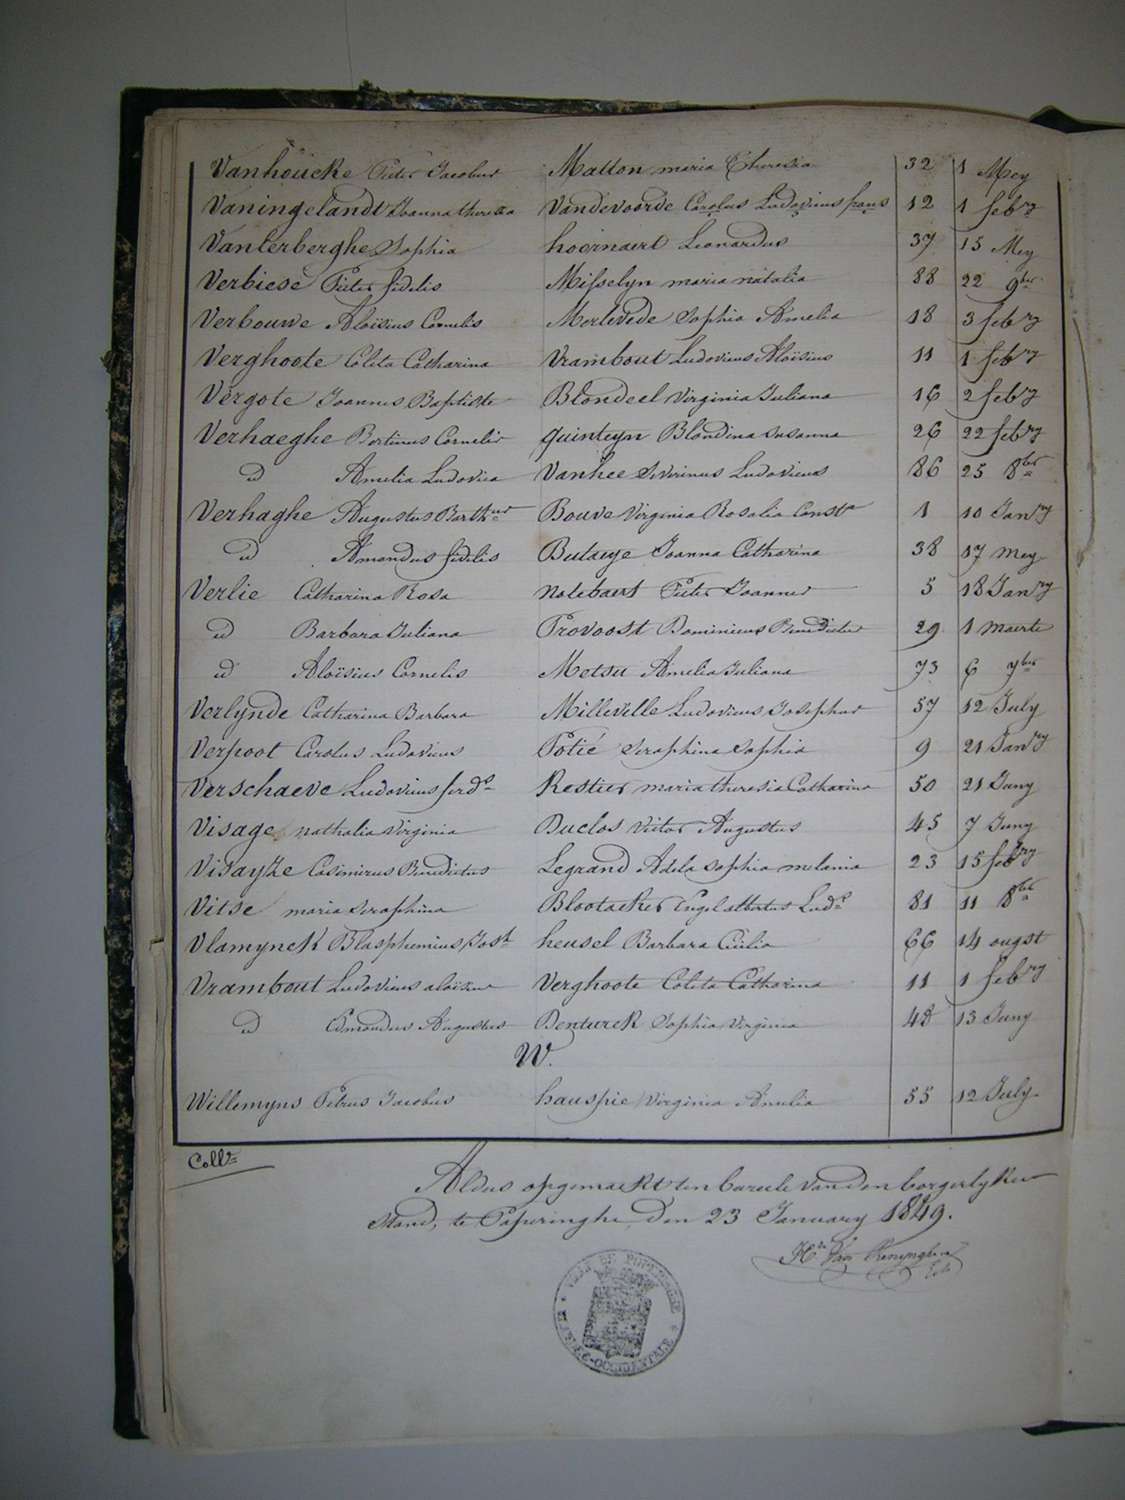 Vanhoucke Pieter Jacobus Matton maria Theresia 32 1 Mey
Vaningelandt Joanna theresia Vandevoorde Carolus Ludovicus frans 12 1 febry
Vanterberghe Sophia hoornaert Leonardus 37 15 Mey
Verbiese Pieter fidelis Misselyn maria natalia 88 22 9ber
Verbouwe Aloïsius Cornelis Merlevede Sophia Amelia 18 3 febry
Verghoote Coleta Catharina Vrambout Ludovicus Aloïsius 11 1 febry
Vergote Joannes Baptiste Blondeel Virginia Juliana 16 2 febry
Verhaeghe Bertinus Cornelis quinteyn Blondina Susanna 26 22 febry
id Amelia Ludovica Vanhee Severinus Ludovicus 86 25 8ber
Verhaghe Augustus Barthus Bouve Virginia Rosalia Consta 1 10 Janry
id Amandus fidelis Butaye Joanna Catharina 38 17 mey
Verlie Catharina Rosa natebaert Pieter Joannes 5 18 Janry
id Barbara Juliana Provoost Dominicus Benedictus 29 1 maerte
id Aloïsius Cornelis Metsu Amelia Juliana 73 6 7ber
Verlynde Catharina Barbara Milleville Ludovicus Josephus 57 12 July
Verpoot Carolus Ludovicus Potié Seraphina Sophia 9 21 Janry
Verschaeve Ludovicus ferdd Restier maria theresia Catharina 50 21 Juny
Visage nathalia Virginia Duclos Victor Augustus 45 7 Juny
Visayze Casimirus Benedictus Legrand Adela Sophia melania 23 15 febry
Vitse maria Seraphina Blootacker Engelabertus Ludc 81 11 8ber
Vlamynck Blasphemius Josh heusel Barbara Cecilia 66 14 ougst
Vrambout Ludovicus aloïsius Verghoote Coleta Catharina 11 1 febry
id Edmondus Augustus Denturck Sophia Virginia 48 13 Juny
W.
Willemyns Petrus Jacobus hauspie Virginia Amelia 55 12 July
Colle
Aldus opgemaekt ten bureele van den borgerlyken
Stand, te Poperinghe, den 23 January 1849.
Hri Van Renynghe
VILLE DE POPERINGHE
FLANDRE-OCCIDENTALE